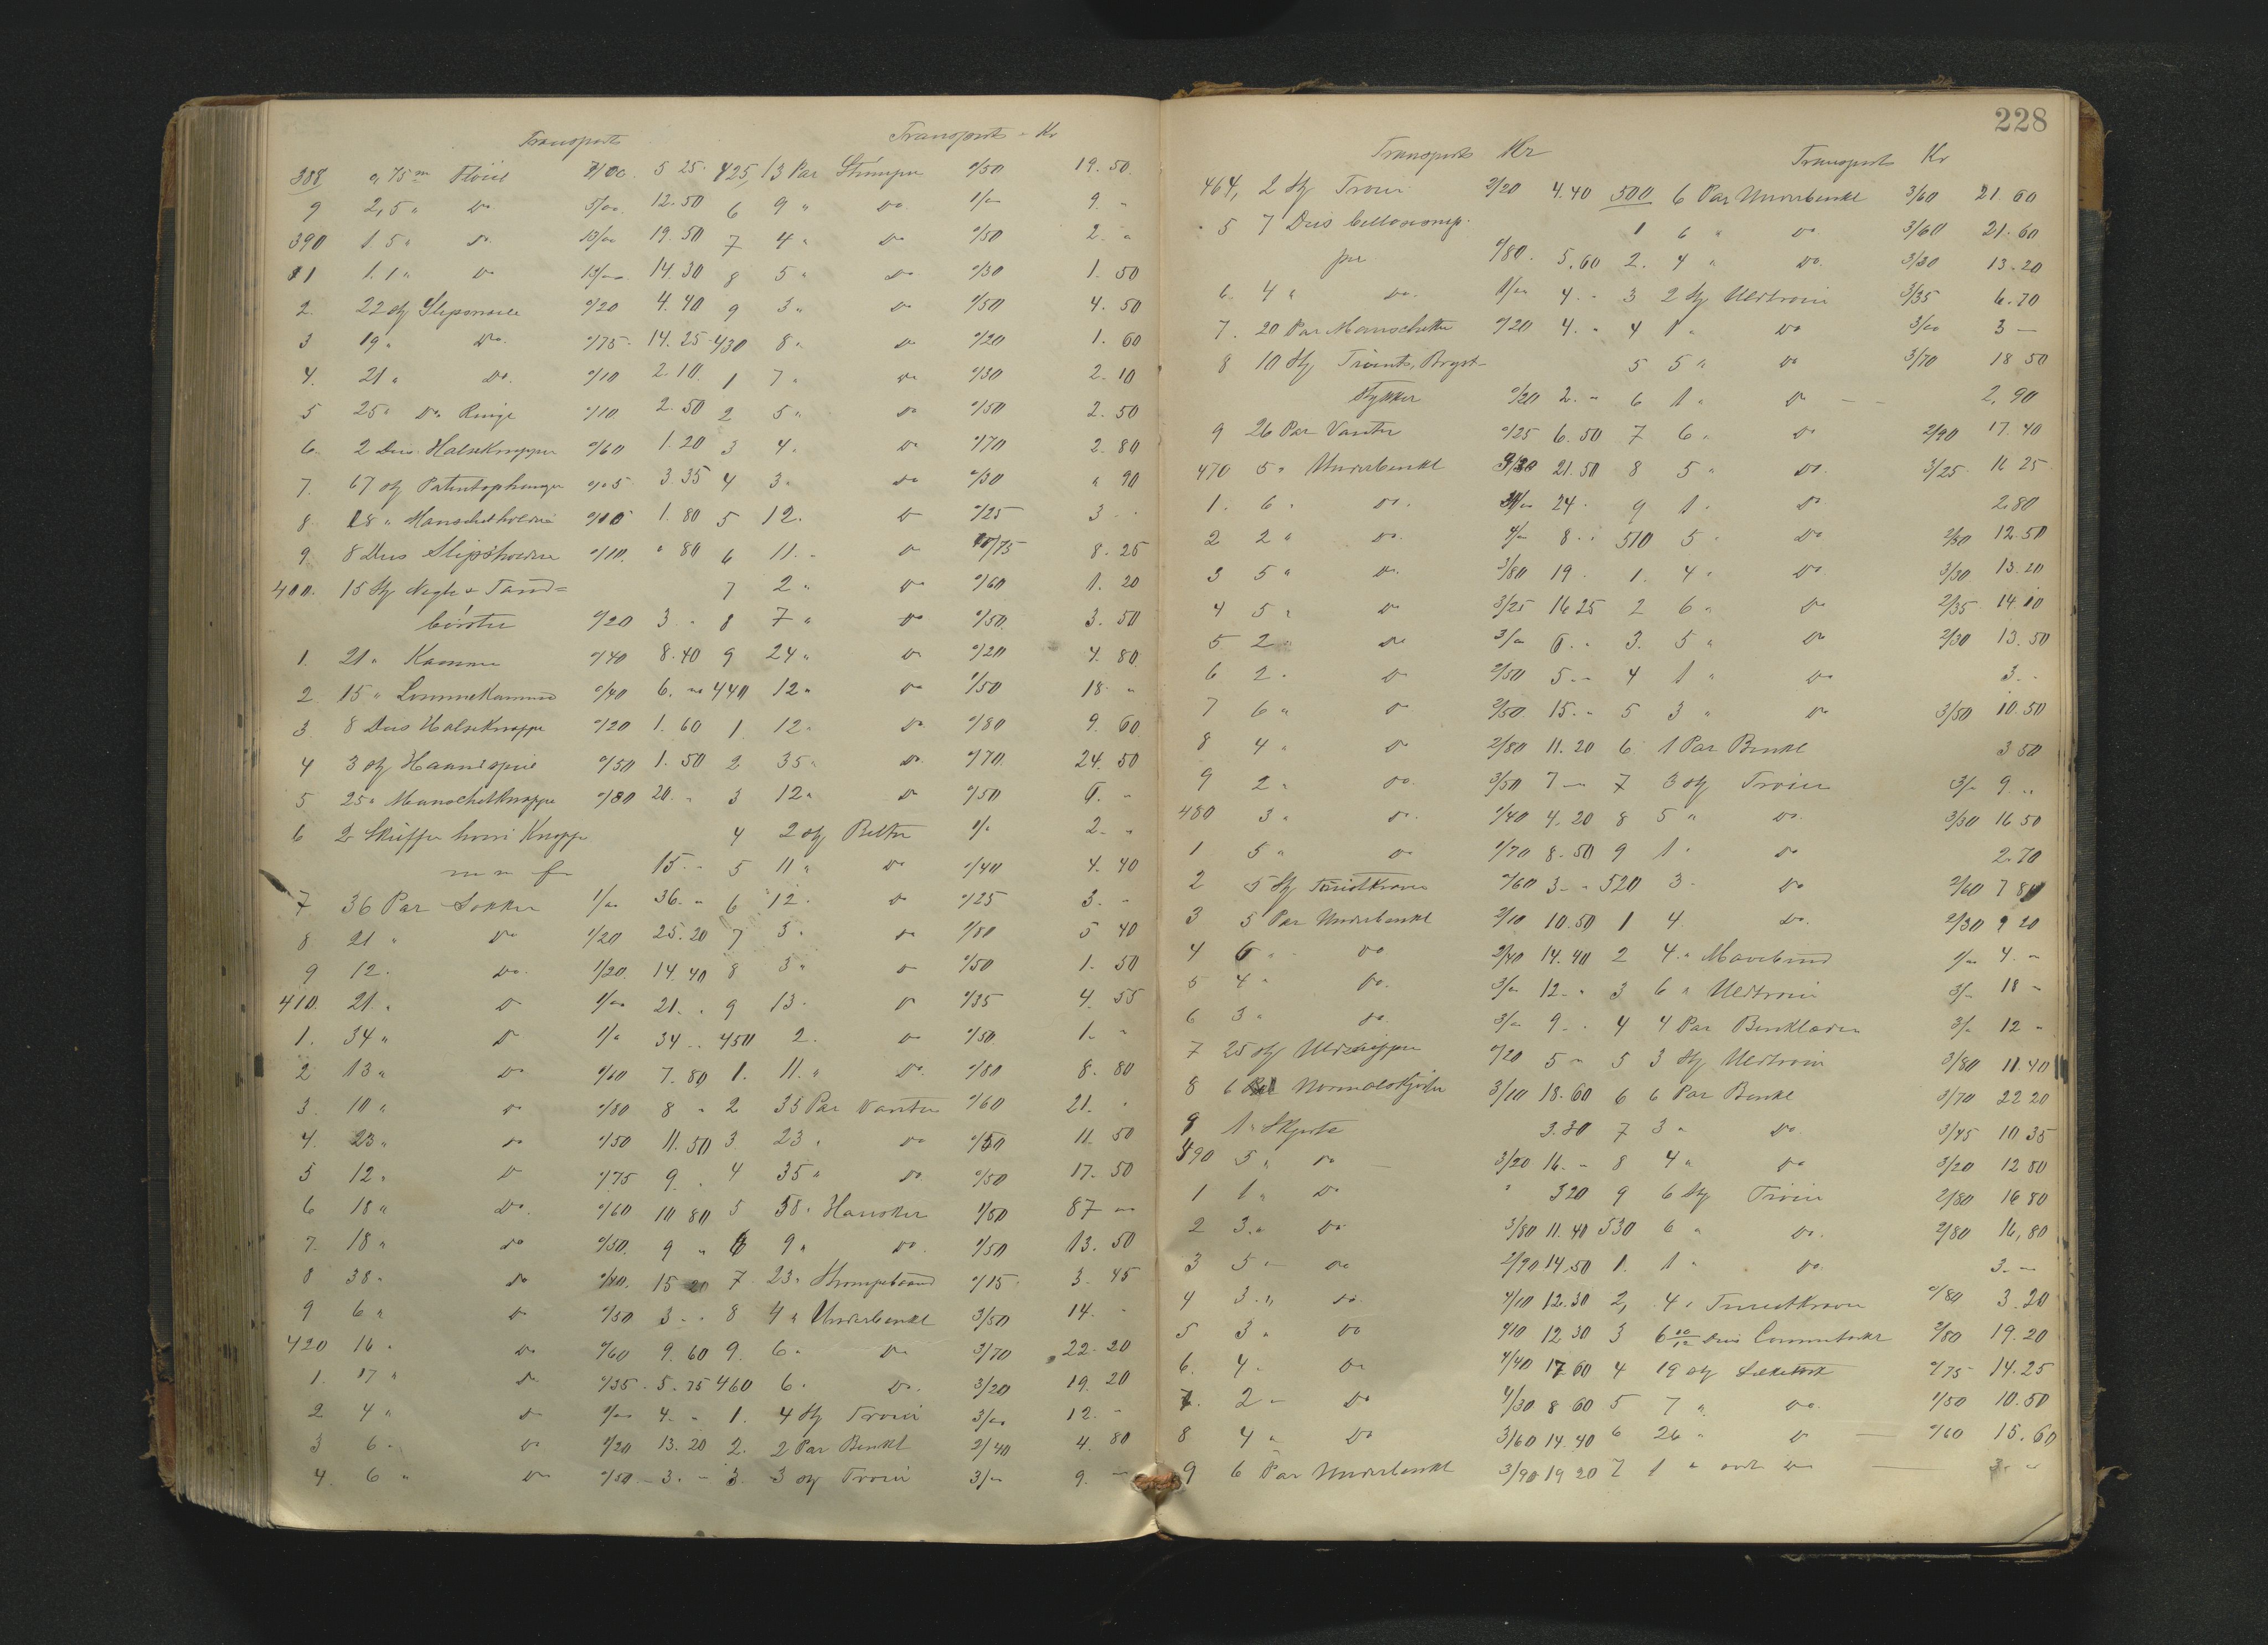 Transports
388 0,75 m Fløiel 7/00 5 25
9 2,5 " Do 5/00 12.50
390 1 5 " Do 13/00 19.50
91 1.1 " Do 13/00 14.30
2 22 Stk Slipsnaale 0/20 4.40
3 19 " Do. 0/75 14.25
4. 21 " Do. 0/10 2.10
5 25 " Do Ringe 0/10 2.50
6. 2 Dus. Halseknapper 0/60 1.20
7. 67 Stk Patentophænger 0/05 3.35
8. 18 " Manschetholdere 0/10 1.80
9. 8 Dus Slipsholdere 0/10. " 80
400. 15 Stk Negle & Tand=
børster 0/20 3. "
1. 21 " Kamme 0/40 8.40
2 15 " Lommekamme 0/40 6. "
3. 8 Dus Halseknappe 0/20 1.60
4 3 Stk Haandspeil 0/50 1.50
5 25 " Manchetknappe 0/80 20. "
6 2 Skuffer hvori Knappe
m m fr 15. -
7 36 Par Sokker 1/00 36. "
8 21 " Do 1/20 25.20
9 12. Do. 1/20. 14.40
410. 21. " Do 1/00 21. "
1. 34 " Do 1/" 34. "
2 13 " Do 0/60 7.80
3. 10 " Do 0/80 8 "
4. 23 " Do 0/50 11.50
5 12. Do 0/75 9. "
6 18 " Do. 0/60 10 80
7. 18 " Do 0/50. 9 "
8 38 " Do 0/40. 15 20
9 6 " Do 0/50 3. "
420 16 " Do 0/60 9.60
1. 17 " Do 0/35. 5.75
2 4 " Do 1/00 4. "
3 6. Do 2/20 13.20
4. 6 " Do 0/50 3. -
Transports - Kr
425, 13 Par Strømper 1/50 19.50.
6 9 " Do. 1/00 9. "
7 4 " Do 0/50 2. "
8 5 " Do 0/30 1. 50
9 3 " Do 1/50 4. 50
430 8 " Do 0/20 1. 60
1 7 " Do 0/30 2. 10
2 5 " Do 0/50 2. 50
3 4. Do 0/70 2. 80
4 3 " Do 0/30 " 90
5 12. Do 0/25 3 -
6 11. " Do 0/75 8. 25
7 2 " Do 0/60 1. 20
8 7 " Do 0/50. 3. 50
9 24 " Do 0/20 4. 80.
440 12 " Do 1/50 18. "
1. 12. " Do 0/80 9. 60
2 35 " Do. 0/70. 24. 50
3 12 " Do 0/50 6. -
4 2 Stk Belter 1/" 2. "
5 11 " Do 0/40 4. 40
6 12. Do 0/25 3. -
7 3 " Do 1/80 5 40
8 3 " Do 0/50 1. 50
9 13. Do 0/35 4. 55
450 2. Do 0/50. 1. "
1. 11. " Do. 0/80 8. 80
2 35 Par Vanter 0/60 21. "
3. 23 " Do 0/50 11. 50
4 35 " Do 0/50 17. 50
5 58 " Hansker 1/50 87 -
6 9 " Do. 1/50 13. 50
7. 23 " Strømpebaand 0/15 3. 45
8 4 " Underbenkl 3/50 14. -
9. 6 " Do 3/70 22. 20
460 6. Do. 3/20 19. 20
1. 4 Stk Trøier 3/00 12. -
2. 2 Par Benkl 2/40 4. 80
3. 3 Stk Trøier 3/00 9. -
228
Transports Kr
464, 2 Stk Trøier 2/20 4.40
5 7 Dus
0/80. 5.60
6. 4 " Do. 1/00 4. "
7. 20 Par Manschetter 0/20 4. "
8 10 Stk Trøiets, Bryst-
stykker 0/20 2. "
9 26 Par Vanter 0/25 6.50
470 5 " Underbenkl 4/30 21.50
1. 6. " Do. 4/00 24.
2 2 " Do. 4/00 8. "
3 5 " Do. 3/80 19.
4 5 " Do 3/25 16 25
5 2 " Do 3/00 6. "
6 2. Do 2/50 5. -
7 6 " Do 2/50. 15. "
8 4 " Do 2/80 11.20
9 2. Do. 3/50 7 -
480 3 " Do. 1/40 4.20
1 5 " Do 1/70 8.50
2 5 Stk Turistkraver 0/60 3. -
3 5 Par Underbenkl 2/10 10.50
4 6 " Do 2/40 14.40
5 4 " Do. 3/00 12. "
6 3 " Do. 3/00 9. "
7 25 Stk 0/20 5 "
8 6 Normalskjorter 3/10 18.60
9 1 " Skjorte 3.30
490 5 " Do 3/20 16. "
1 1 " Do " 3 20
2 3. " Do 3/80 11.40
3 5 - Do 2/90 14.50
4 3. " Do. 4/10 12.30
5 3 " Do 4/10 12 30
6. 4 " Do 4/40 17 60
7. 2 - Do 4/30 8 60
8 4 " Do 3/60 14.40
9 6 Par Underbenkl 3/90 19 20
Transports Kr
500 6 Par Underbenkl 3/60 21.60
1 6 " Do 3/60 21.60
2. 4 " Do. 3/30 13.20
3 2 Stk Uldtrøier 3/35 6.70
4 1 " Do 3/00 3 -
5 5 " Do 3/70 18 50
6 1 " Do - - 2,90
7 6 " Do 2/90 17.40
8 5 " Do. 3/25. 16 25
9 1. Do 2.80
510 5 " Do 2/50 12.50
1. 4 " Do 3/30 13.20
2 6 " Do 2/35 14.10
3. 5 " Do 2/30 13.50
4 1 " Do 3. -
5 3 " Do 3/50 10.50
6. 1 Par Benkl 3 50
7 3 Stk Trøier 3/" 9 "
8 5 " Do. 3/30 16 50
9 1 " Do 2.70
520 3. Do 2/60 7 80
1 4. Do. 2/30 9 20
2 4. " Mavebind 1/00 4. "
3 6 " Uldtrøier 3/- 18 -
4 4 Par Benklæder 3/" 12 "
5 3 Stk Uldtrøier 3/80 11.40
6 6 Par Benkl 3/70 22 20
7 3 " Do. 3/45 10 35
8 4 " Do 3/20 12 80
9 6 Stk Trøier 2/80 16 80
530 6 " Do. 2/80 16,80
1. 1 " Do. 3. -
2, 4 " Turistkraver 0/80 3.20
3 6 10/12 Dus 2/80 19.20
4 19 Stk 0/75 14.25
5 7 " Do. 1/50 10.50
6 26 " Do - 0/60 15.60
7 1 " Do - 3. "